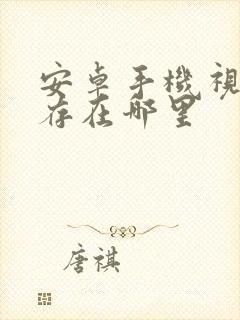 安卓手機視
存在哪里
唐祺